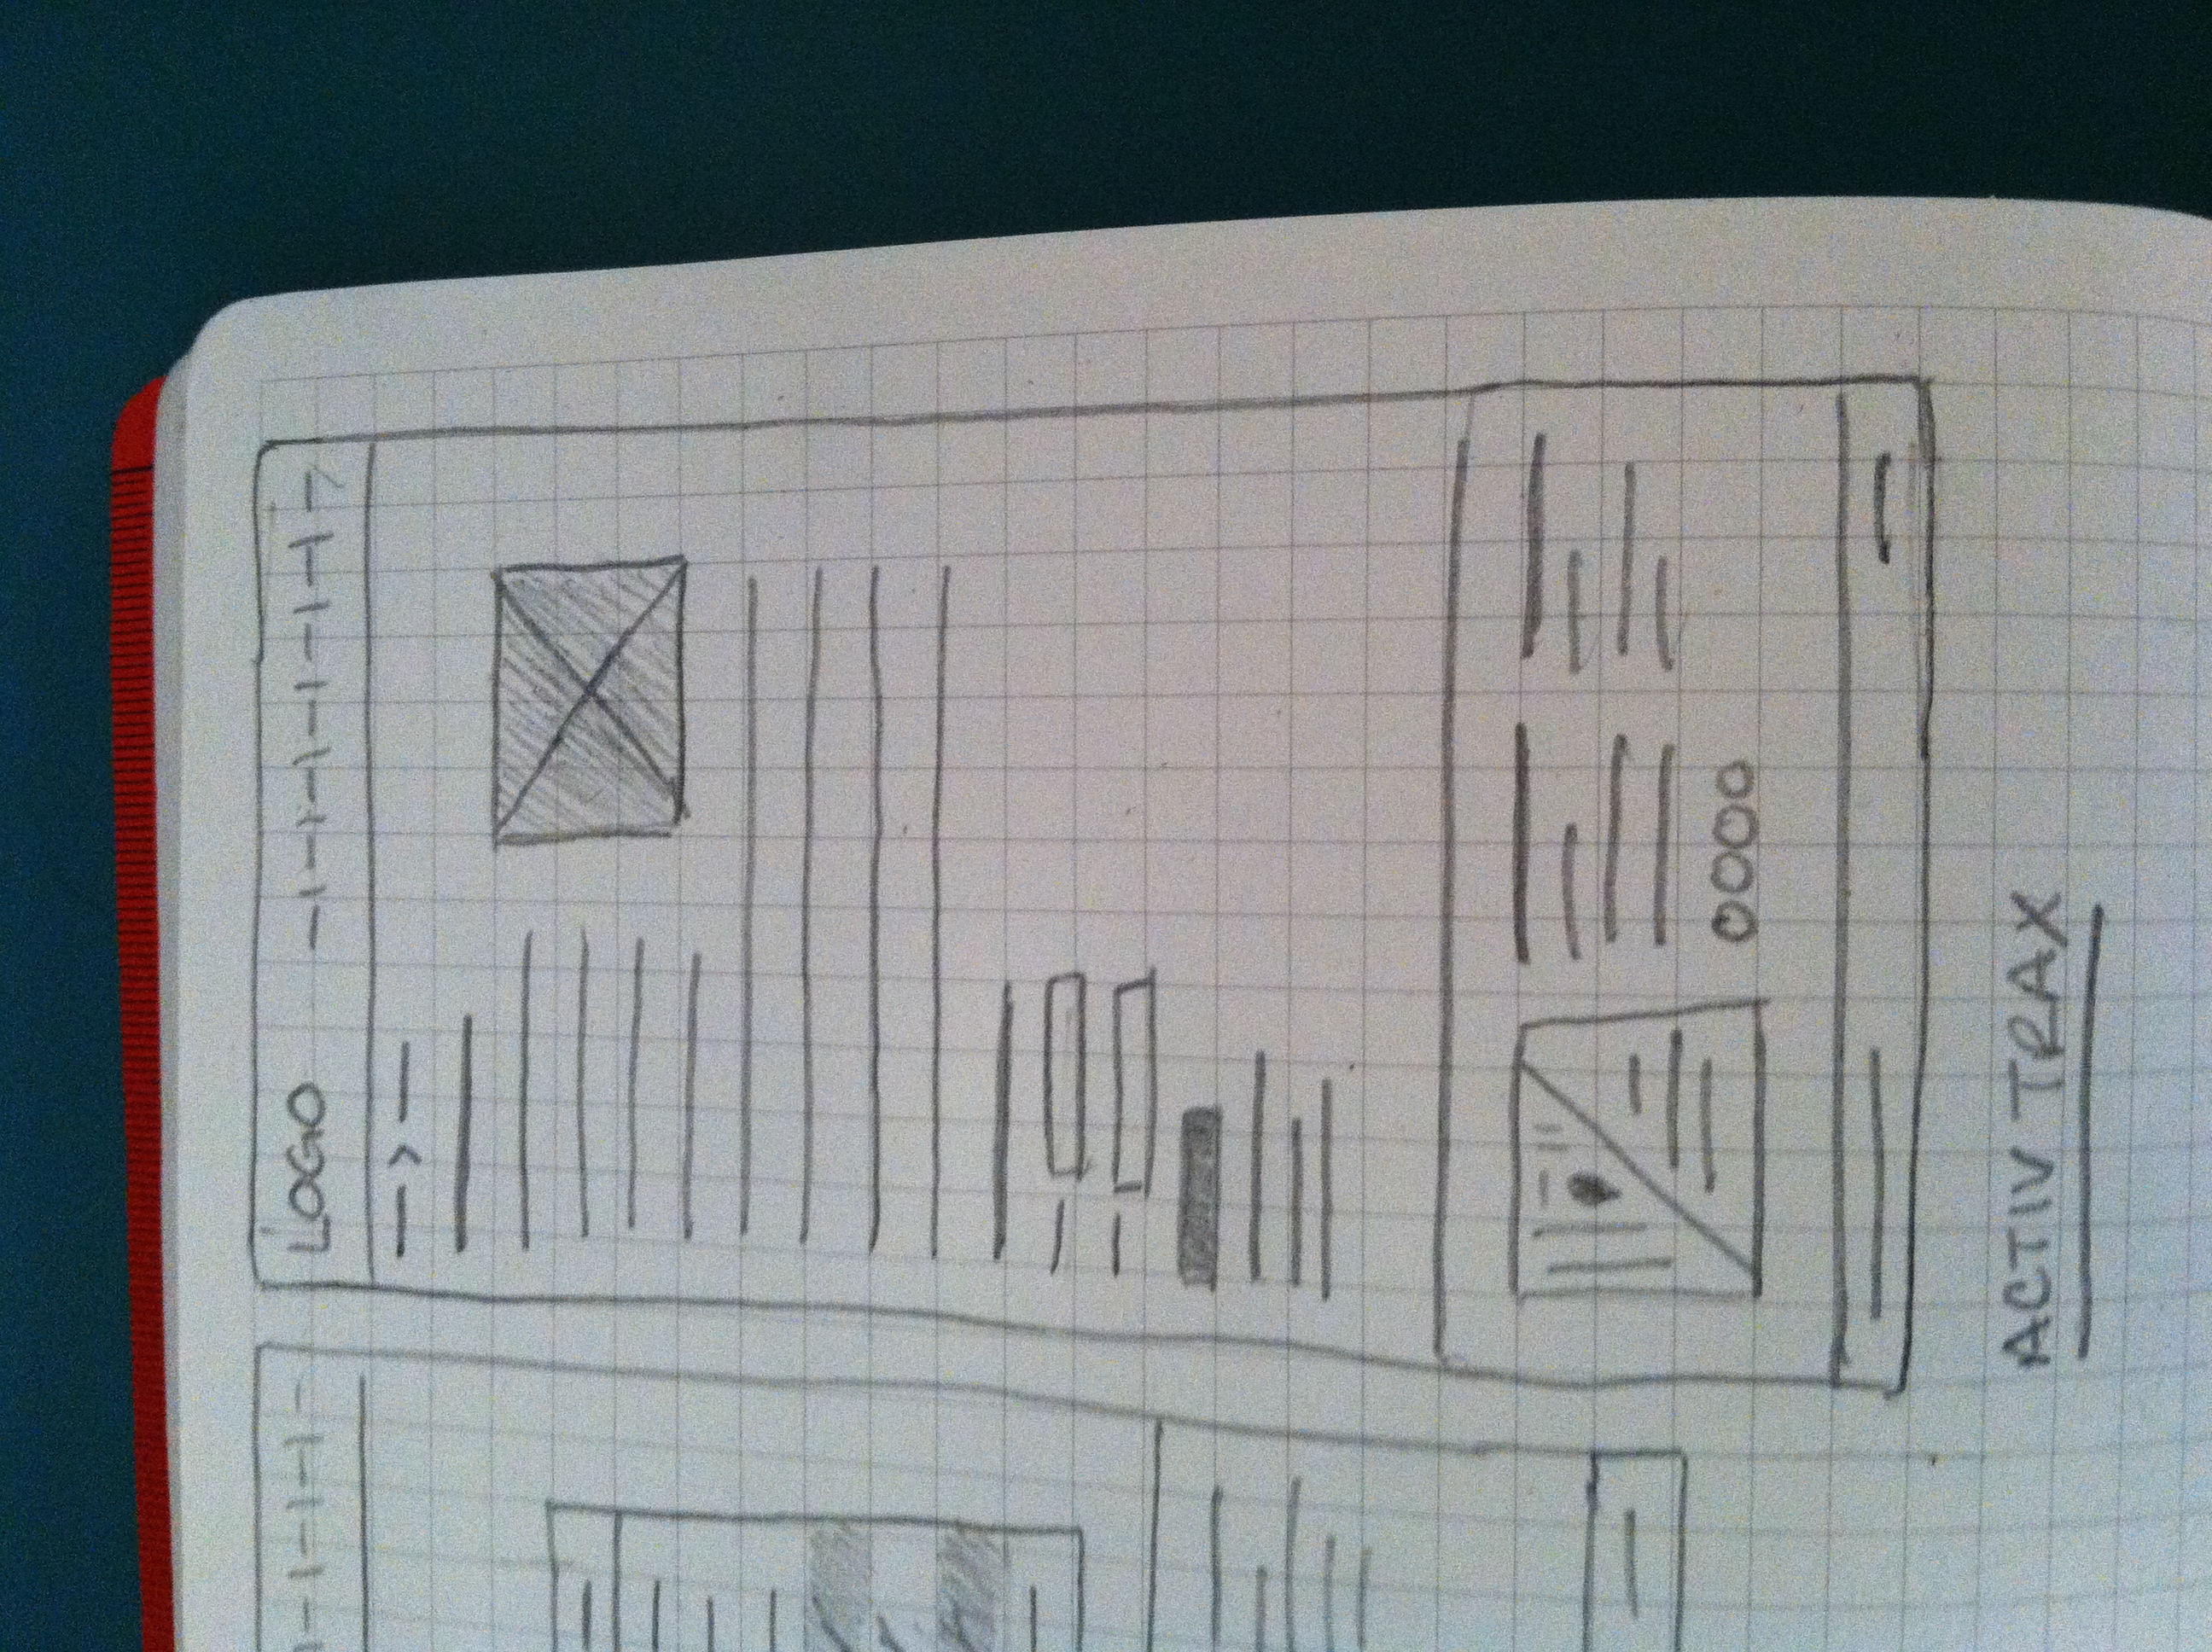 LOGO
ACTIV TRAX